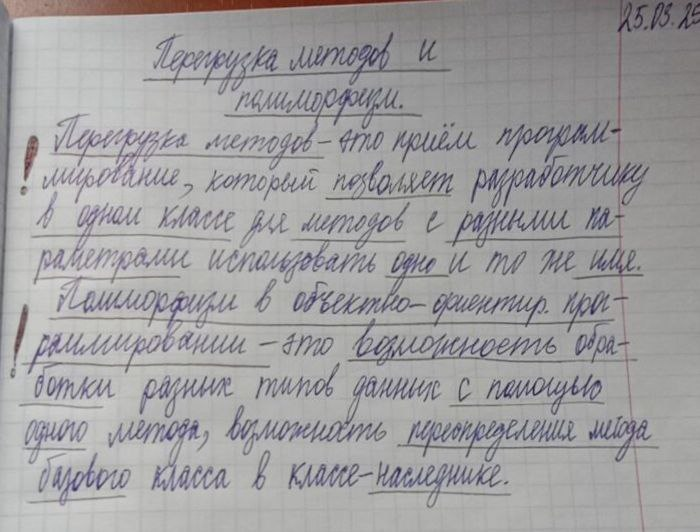 25.03.25
Перегрузка методов и
полиморфизм.
! Перегрузка методов - это приём програм-
мирование, который позволяет разработчику
в одном классе для методов с разными па-
раметрами использовать одно и то же имя.
! Полиморфизм в объектно-ориентир. прог-
раммировании - это возможность обра-
ботки разных типов данных с помощью
одного метода, возможность переопределения метода
базового класса в классе-наследнике.